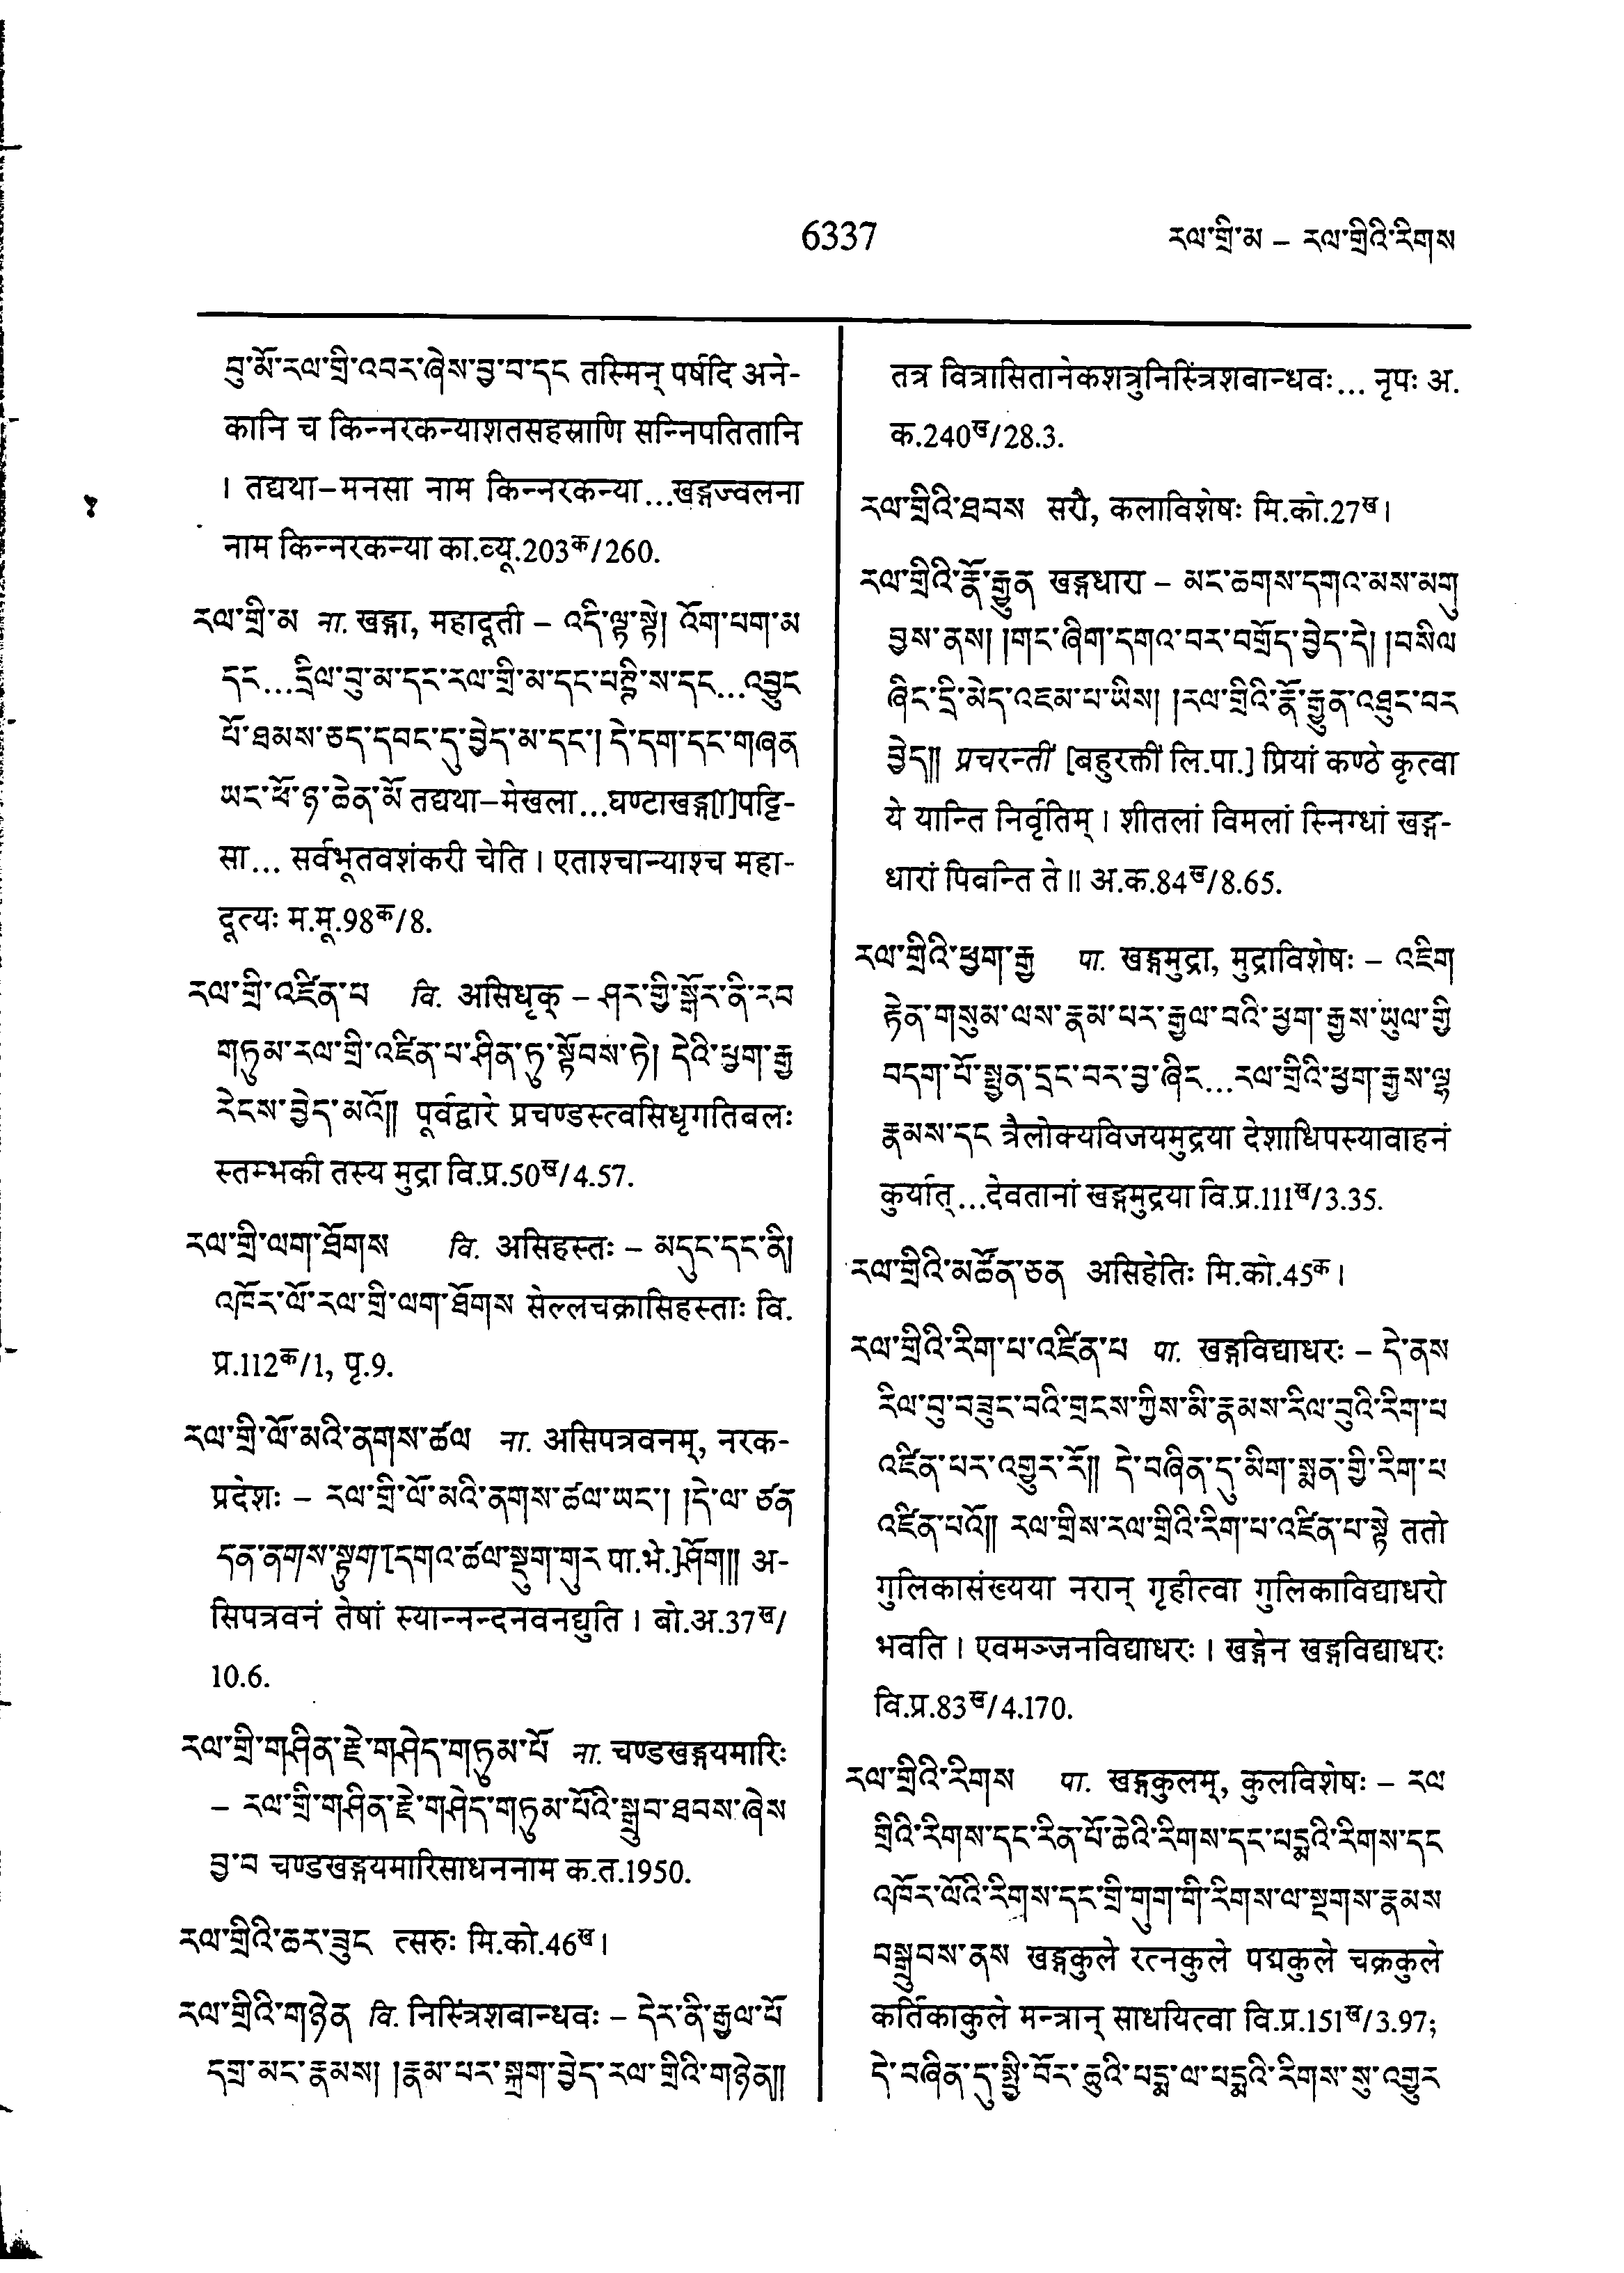 6337
རལ་གྲི་མ – རལ་གྲིའི་རིགས
བུ་མོ་རལ་གྲི་འབར་ཞེས་བྱ་བ་དང तस्मिन् पर्षदि अने-
कानि च किन्नरकन्याशतसहस्राणि सन्निपतितानि
। तद्यथा–मनसा नाम किन्नरकन्या...खड्गज्वलना
नाम किन्नरकन्या का.व्यू.203क/260.
རལ་གྲི་མ ना. खड्गा, महादूती – འདི་ལྟ་སྟེ། འོག་པག་མ
དང...དྲིལ་བུ་མ་དང་རལ་གྲི་མ་དང་པཊྚི་ས་དང...འབྱུང
པོ་ཐམས་ཅད་དབང་དུ་བྱེད་མ་དང་། དེ་དག་དང་གཞན
ཡང་ཕོ་ཉ་ཆེན་མོ तद्यथा–मेखला...घण्टाखड्ग[ा]पट्टि-
सा... सर्वभूतवशंकरी चेति । एताश्चान्याश्च महा-
दूत्यः म.मू.98क/8.
རལ་གྲི་འཛིན་པ वि. असिधृक् – ཤར་གྱི་སྒོར་ནི་རབ
གཏུམ་རལ་གྲི་འཛིན་པ་ཤིན་ཏུ་སྟོབས་ཏེ། དེའི་ཕྱག་རྒྱ
རེངས་བྱེད་མའོ།། पूर्वद्वारे प्रचण्डस्त्वसिधृगतिबलः
स्तम्भकी तस्य मुद्रा वि.प्र.50ख/4.57.
རལ་གྲི་ལག་ཐོགས वि. असिहस्तः – མདུང་དང་ནི།
འཁོར་ལོ་རལ་གྲི་ལག་ཐོགས सेल्लचक्रासिहस्ताः वि.
प्र.112क/1, पृ.9.
རལ་གྲི་ལོ་མའི་ནགས་ཚལ ना. असिपत्रवनम्, नरक-
प्रदेशः – རལ་གྲི་ལོ་མའི་ནགས་ཚལ་ཡང་། །དེ་ལ་ཙན
དན་ནགས་སྟུག[དགའ་ཚལ་སྡུག་གུར पा.भे.]ཤོག།། अ-
सिपत्रवनं तेषां स्यान्नन्दनवनद्युति । बो.अ.37ख/
10.6.
རལ་གྲི་གཤིན་རྗེ་གཤེད་གཏུམ་པོ ना. चण्डखड्गयमारिः
– རལ་གྲི་གཤིན་རྗེ་གཤེད་གཏུམ་པོའི་སྒྲུབ་ཐབས་ཞེས
བྱ་བ चण्डखड्गयमारिसाधननाम क.त.1950.
རལ་གྲིའི་ཆར་ཟུང त्सरुः मि.को.46ख।
རལ་གྲིའི་གཉེན वि. निस्त्रिंशबान्धवः – དེར་ནི་རྒྱལ་པོ
དགྲ་མང་རྣམས། །རྣམ་པར་སྐྲག་བྱེད་རལ་གྲིའི་གཉེན།།
तत्र वित्रासितानेकशत्रुनिस्त्रिंशबान्धवः... नृपः अ.
क.240ख/28.3.
རལ་གྲིའི་ཐབས सरौ, कलाविशेषः मि.को.27ख।
རལ་གྲིའི་རྣོ་རྒྱུན खड्गधारा – མང་ཆགས་དགའ་མས་མགུ
བྱས་ནས། །གང་ཞིག་དགའ་བར་བགྲོད་བྱེད་དེ། །བསིལ
ཞིང་དྲི་མེད་འཇམ་པ་ཡིས། །རལ་གྲིའི་རྣོ་རྒྱུན་འཐུང་བར
བྱེད།། प्रचरन्तीं [बहुरक्तीं लि.पा.] प्रियां कण्ठे कृत्वा
ये यान्ति निर्वृतिम् । शीतलां विमलां स्निग्धां खड्ग-
धारां पिबन्ति ते ॥ अ.क.84ख/8.65.
རལ་གྲིའི་ཕྱག་རྒྱ पा. खड्गमुद्रा, मुद्राविशेषः – འཇིག
རྟེན་གསུམ་ལས་རྣམ་པར་རྒྱལ་བའི་ཕྱག་རྒྱས་ཡུལ་གྱི
བདག་པོ་སྤྱན་དྲང་བར་བྱ་ཞིང...རལ་གྲིའི་ཕྱག་རྒྱས་ལྷ
རྣམས་དང त्रैलोक्यविजयमुद्रया देशाधिपस्यावाहनं
कुर्यात्...देवतानां खड्गमुद्रया वि.प्र.111ख/3.35.
རལ་གྲིའི་མཚོན་ཅན असिहेतिः मि.को.45क।
རལ་གྲིའི་རིག་པ་འཛིན་པ पा. खड्गविद्याधरः – དེ་ནས
རིལ་བུ་བཟུང་བའི་གྲངས་ཀྱིས་མི་རྣམས་རིལ་བུའི་རིག་པ
འཛིན་པར་འགྱུར་རོ།། དེ་བཞིན་དུ་མིག་སྨན་གྱི་རིག་པ
འཛིན་པའོ།། རལ་གྲིས་རལ་གྲིའི་རིག་པ་འཛིན་པ་སྟེ ततो
गुलिकासंख्यया नरान् गृहीत्वा गुलिकाविद्याधरो
भवति । एवमञ्जनविद्याधरः । खड्गेन खड्गविद्याधरः
वि.प्र.83ख/4.170.
རལ་གྲིའི་རིགས पा. खड्गकुलम्, कुलविशेषः – རལ
གྲིའི་རིགས་དང་རིན་པོ་ཆེའི་རིགས་དང་པདྨའི་རིགས་དང
འཁོར་ལོའི་རིགས་དང་གྲི་གུག་གི་རིགས་ལ་སྔགས་རྣམས
བསྒྲུབས་ནས खड्गकुले रत्नकुले पद्मकुले चक्रकुले
कर्तिकाकुले मन्त्रान् साधयित्वा वि.प्र.151ख/3.97;
དེ་བཞིན་དུ་སྤྱི་བོར་ཆུའི་པདྨ་ལ་པདྨའི་རིགས་སུ་འགྱུར